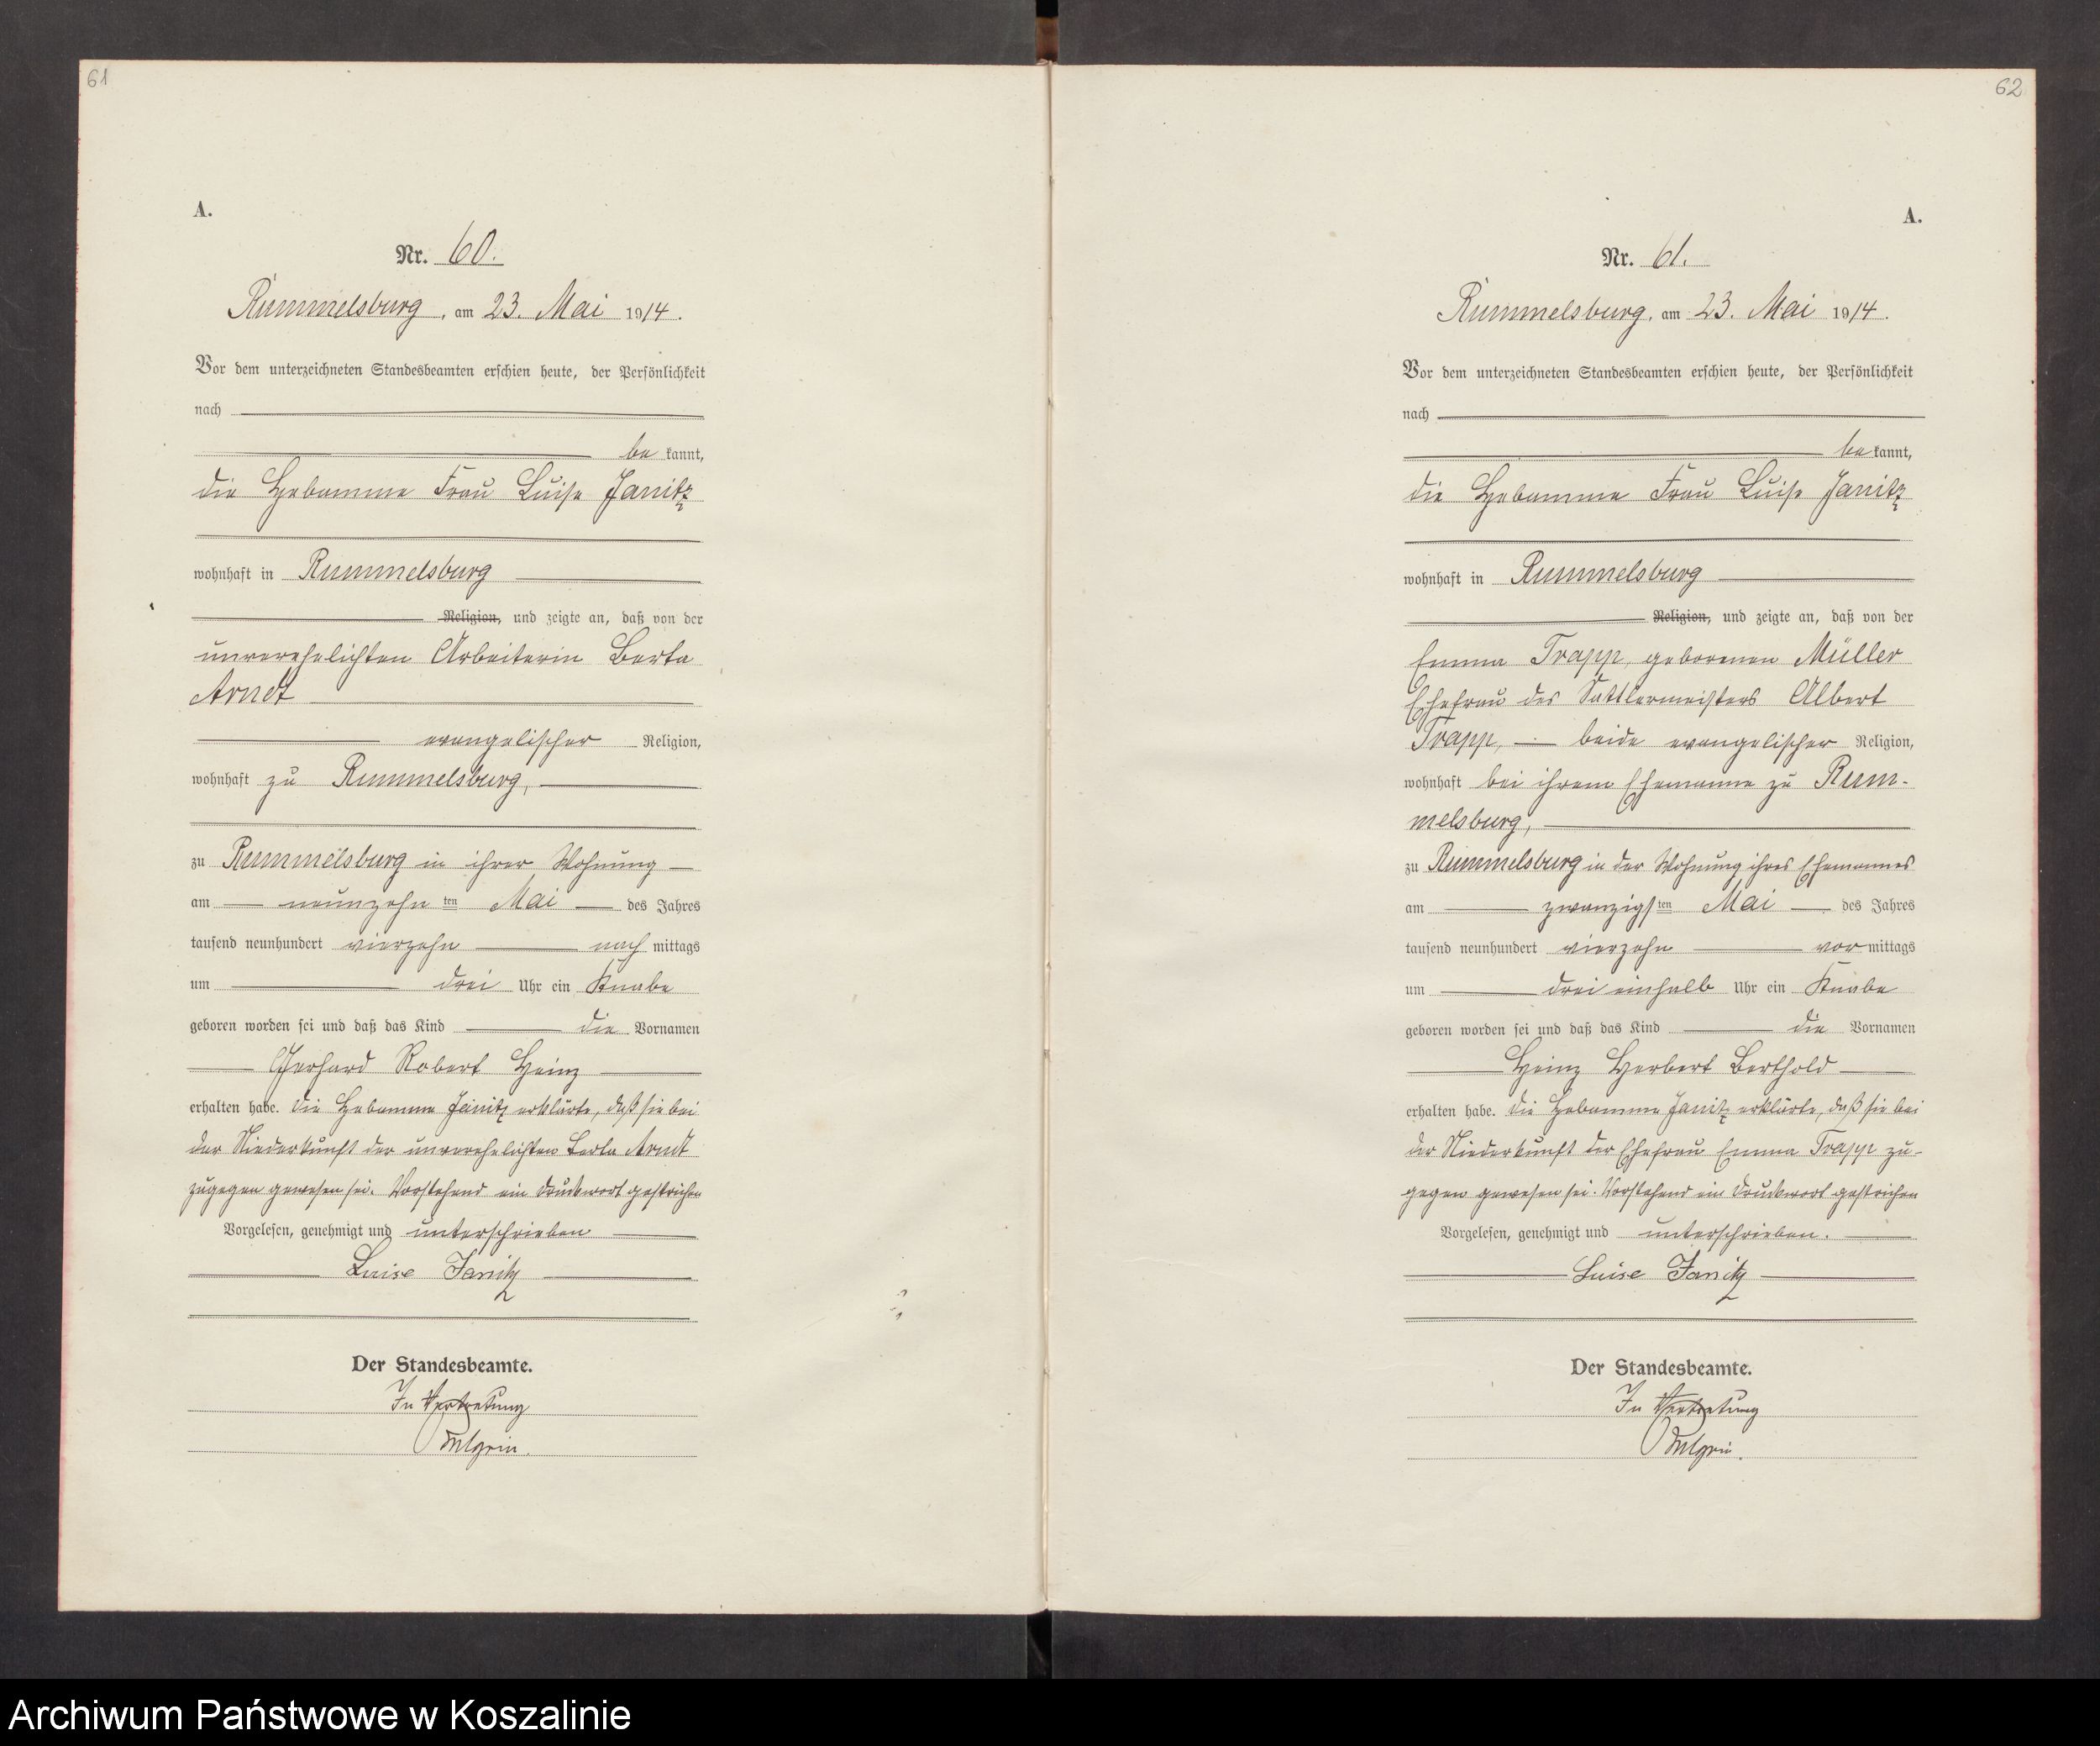 61
A.
Nr. 60.
Rummelsburg, am 23. Mai 1914.
Vor dem unterzeichneten Standesbeamten erschien heute, der Persönlichkeit
nach
bekannt,
die Hebamme Frau Luise Janitz
wohnhaft in Rummelsburg
Religion, und zeigte an, daß von der
unverehelichten Arbeiterin Berta
Arndt
evangelischer Religion,
wohnhaft zu Rummelsburg,
zu Rummelsburg in ihrer Wohnung
am neunzehnten Mai des Jahres
tausend neunhundert vierzehn nachmittags
um drei Uhr ein Knabe
geboren worden sei und daß das Kind die Vornamen
Gerhard Robert Heinz
erhalten habe. Die Hebamme Janitz erklärte, daß sie bei
der Niederkunft der unverehelichten Berta Arndt
zugegen gewesen sei. Vorstehend ein Druckwort gestrichen
Vorgelesen, genehmigt und unterschrieben
Luise Janitz
Der Standesbeamte.
In Vertretung
62
A.
Nr. 61.
Rummelsburg, am 23. Mai 1914.
Vor dem unterzeichneten Standesbeamten erschien heute, der Persönlichkeit
nach
bekannt,
die Hebamme Frau Luise Janitz
wohnhaft in Rummelsburg
Religion, und zeigte an, daß von der
Emma Trapp, geborenen Müller
Ehefrau des Sattlermeisters Albert
Trapp, beide evangelischer Religion,
wohnhaft bei ihrem Ehemanne zu Rum-
melsburg,
zu Rummelsburg in der Wohnung ihres Ehemannes
am zwanzigsten Mai des Jahres
tausend neunhundert vierzehn vormittags
um drei einhalb Uhr ein Knabe
geboren worden sei und daß das Kind die Vornamen
Heinz Herbert Berthold
erhalten habe. Die Hebamme Janitz erklärte, daß sie bei
der Niederkunft der Ehefrau Emma Trapp zu-
gegen gewesen sei. Vorstehend ein Druckwort gestrichen
Vorgelesen, genehmigt und unterschrieben.
Luise Janitz
Der Standesbeamte.
In Vertretung
Archiwum Państwowe w Koszalinie